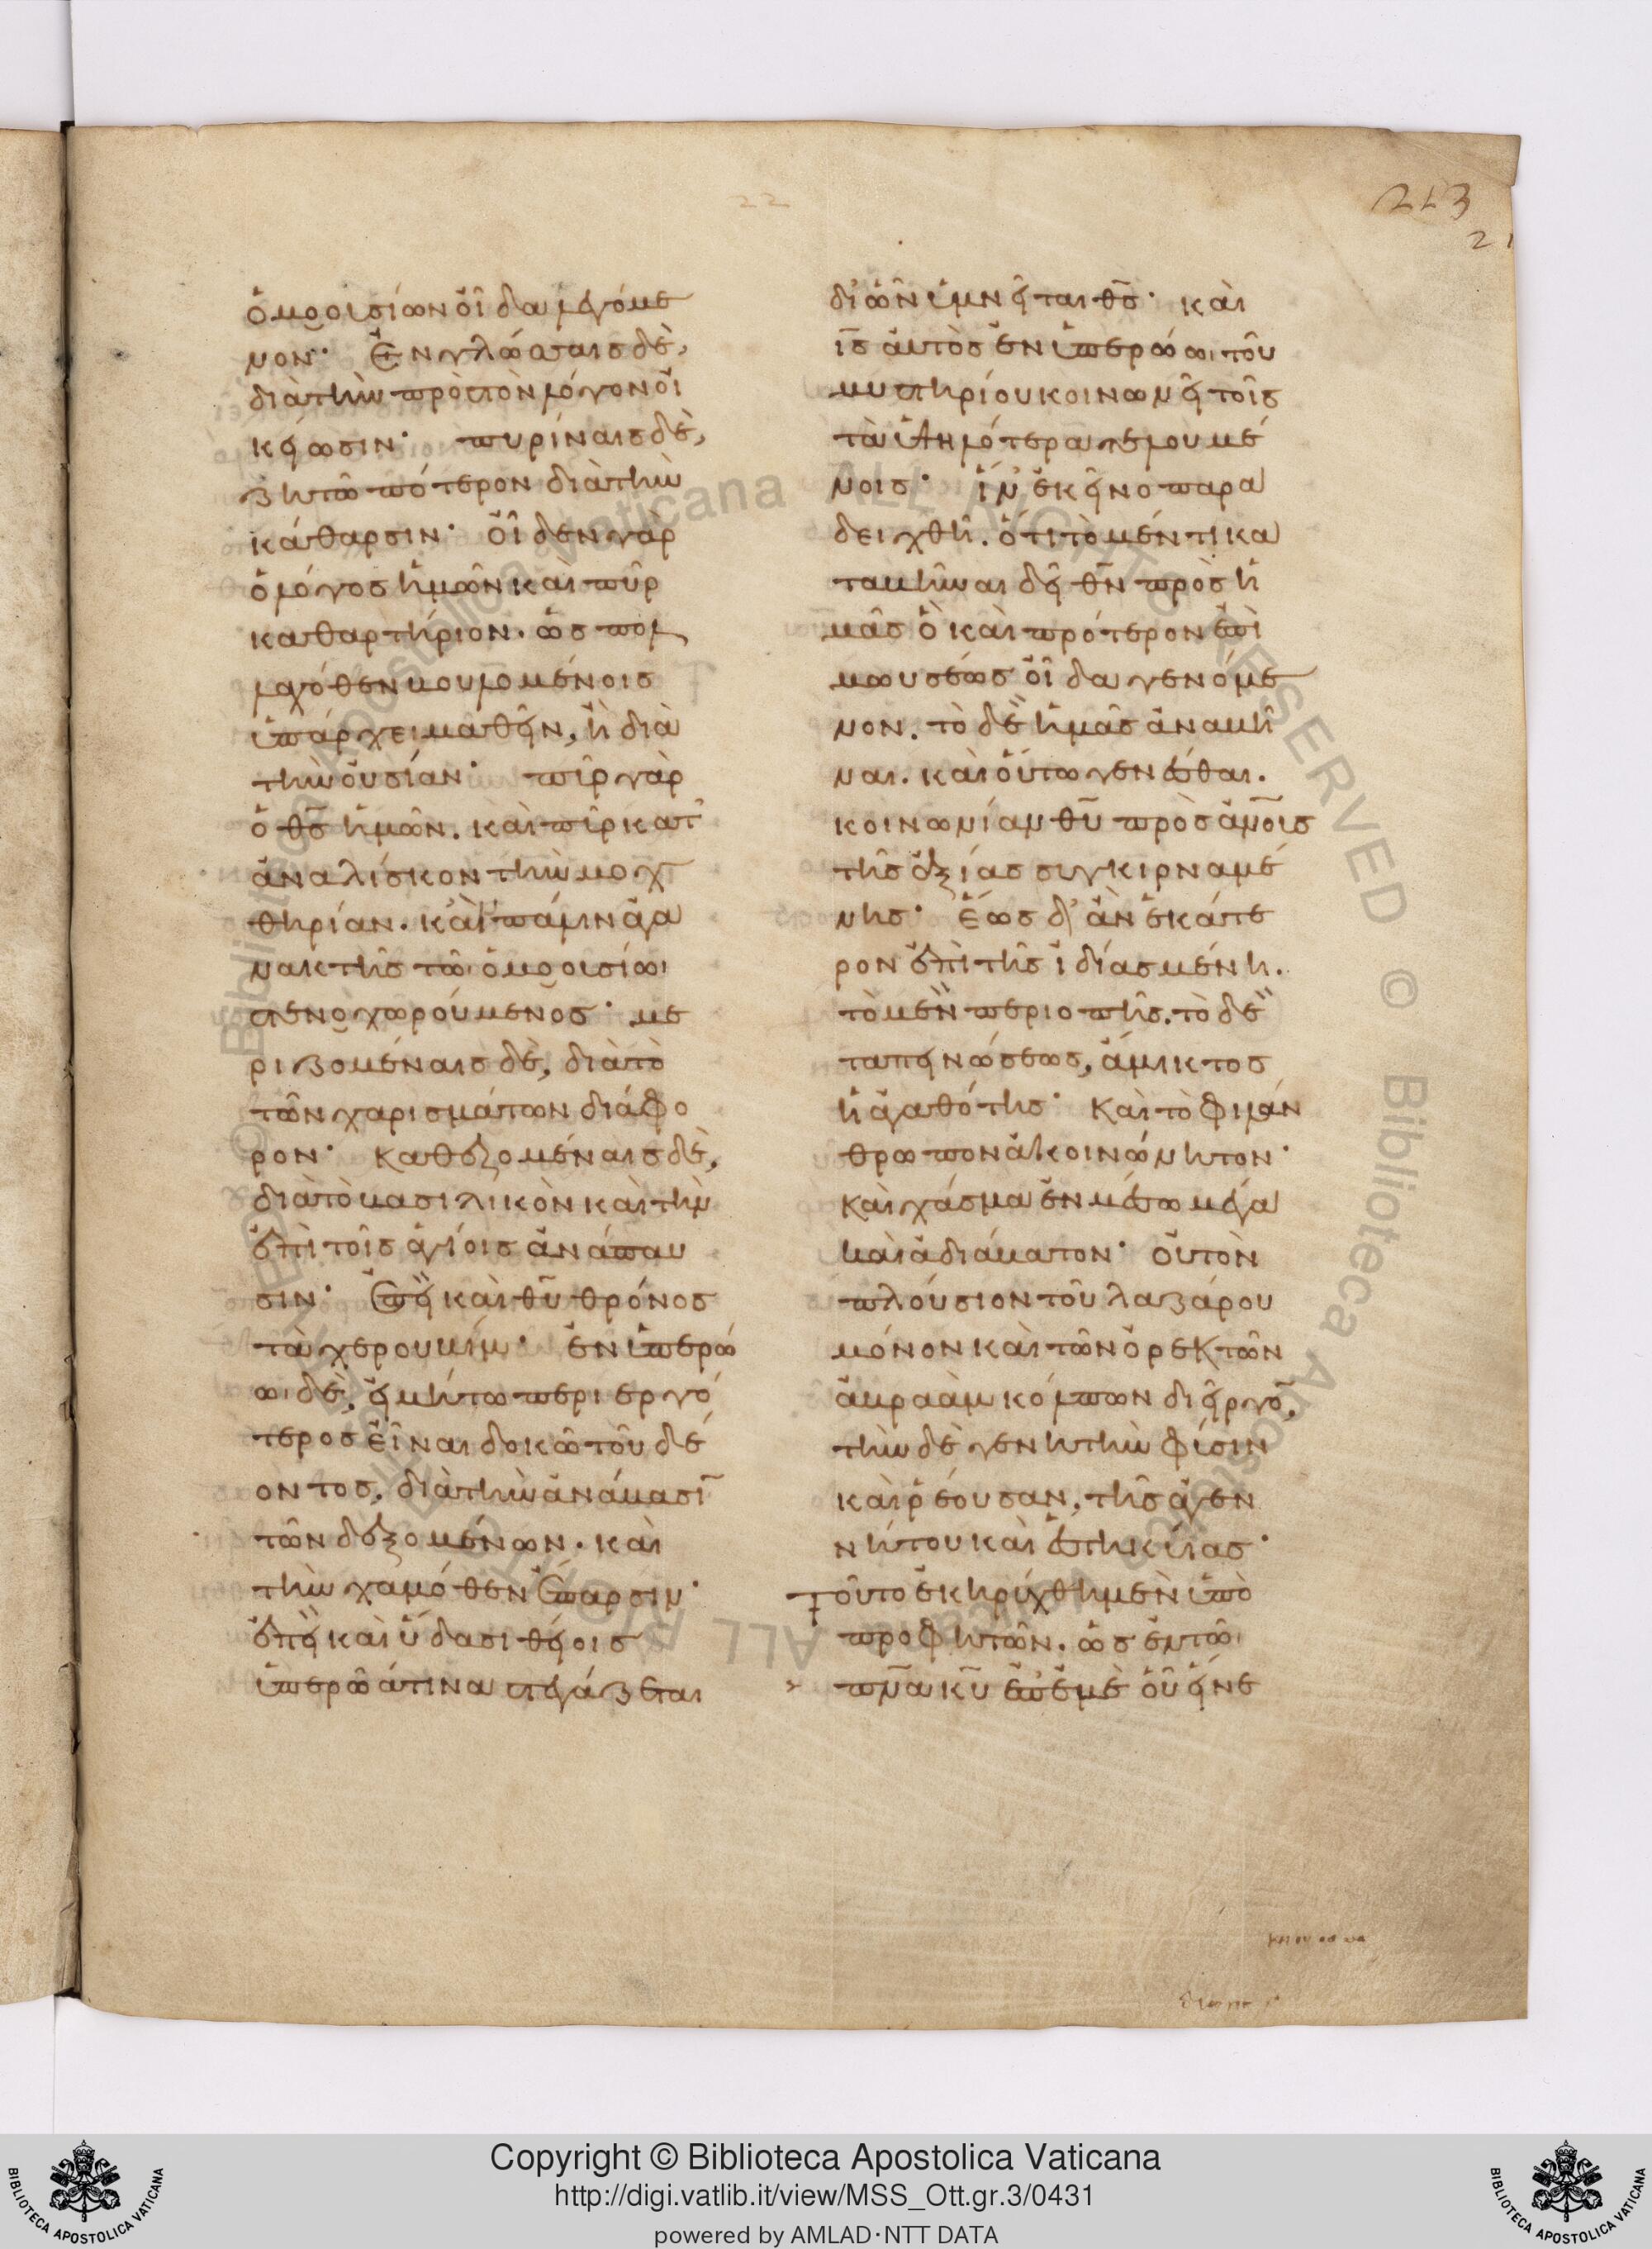 22
223
21
ὁμοουσίων οἶδα λεγόμε
νον· Ἐν γλώσσαις δὲ,
διὰ τὴν πρὸς τὸν λόγον οἰ
κείωσιν· πυρίναις δὲ,
ζητῶ πότερον διὰ τὴν
κάθαρσιν· οἶδεν γὰρ
ὁ λόγος ἡμῶν καὶ πῦρ
καθαρτήριον. ὡς πολ
λαχόθεν βουλομένοις
ὑπάρχει μαθεῖν, ἢ διὰ
τὴν οὐσίαν· πῦρ γὰρ
ὁ θς ἡμῶν. καὶ πῦρ κατ
ἀναλίσκον τὴν μοχ
θηρίαν. κἂν πάλιν ἀγα
νακτῆς τῶ ὁμοουσίωι
στενοχωρούμενος· με
ριζομέναις δὲ, διὰ τὸ
τῶν χαρισμάτων διάφο
ρον· καθεζομέναις δὲ,
διὰ τὸ βασιλικὸν καὶ τὴν
ἐπὶ τοῖς ἁγίοις ἀνάπαυ
σιν· Ἐπεὶ καὶ θυ θρόνος
τὰ χερουβίμ· ἐν ὑπερώ
ωι δὲ, εἰ μή τω περιεργό
τερος εἶναι δοκῶ τοῦ δέ
οντος, διὰ τὴν ἀνάβασι
τῶν δεξομένων. καὶ
τὴν χαμόθεν ἔπαρσιν·
ἐπεὶ καὶ ὕδασι θείοις
ὑπερῶά τινα στεγάζεται
δι ὧν ὑμνεῖται θς· καὶ
ις αὐτὸς ἐν ὑπερώωι τοῦ
μυστηρίου κοινωνεῖ τοῖς
τὰ ὑψηλότερα τελουμέ
νοις· ἵν ἐκεῖνο παρα
δειχθῆ. ὅτι τὸ μέν τι κα
ταβῆναι δεῖ θν πρὸς ἡ
μᾶς ὃ καὶ πρότερον ἐπὶ
μωυσέως οἶδα γενόμε
νον. τὸ δὲ ἡμᾶς ἀναβῆ
ναι. καὶ οὕτω γενέσθαι.
κοινωνίαν θυ πρὸς ἀνοις
τῆς ἀξίας συγκιρναμέ
νης· ἕως δ ἂν ἑκάτε
ρον ἐπὶ τῆς ἰδίας μένη.
τὸ μὲν περιοπῆς. τὸ δὲ
ταπεινώσεως, ἄμικτος
ἡ ἀγαθότης· καὶ τὸ φιλάν
θρωπον ἀκοινώνητον·
καὶ χάσμα ἐν μέσω μέγα
καὶ ἀδιάβατον· οὐ τὸν
πλούσιον τοῦ λαζάρου
μόνον καὶ τῶν ὀρεκτῶν
ἀβραὰμ κόλπων διεῖργο,
τὴν δὲ γενητὴν φύσιν
καὶ ῥέουσαν, τῆς ἀγεν
νήτου καὶ ἑστηκυίας·
Τοῦτο ἐκηρύχθη μὲν ὑπὸ
προφητῶν. ὡς ἐν τῶ
πνα κυ ἐπ ἐμὲ οὗ εἵνε
Copyright © Biblioteca Apostolica Vaticana
http://digi.vatlib.it/view/MSS_Ott.gr.3/0431
powered by AMLAD·NTT DATA